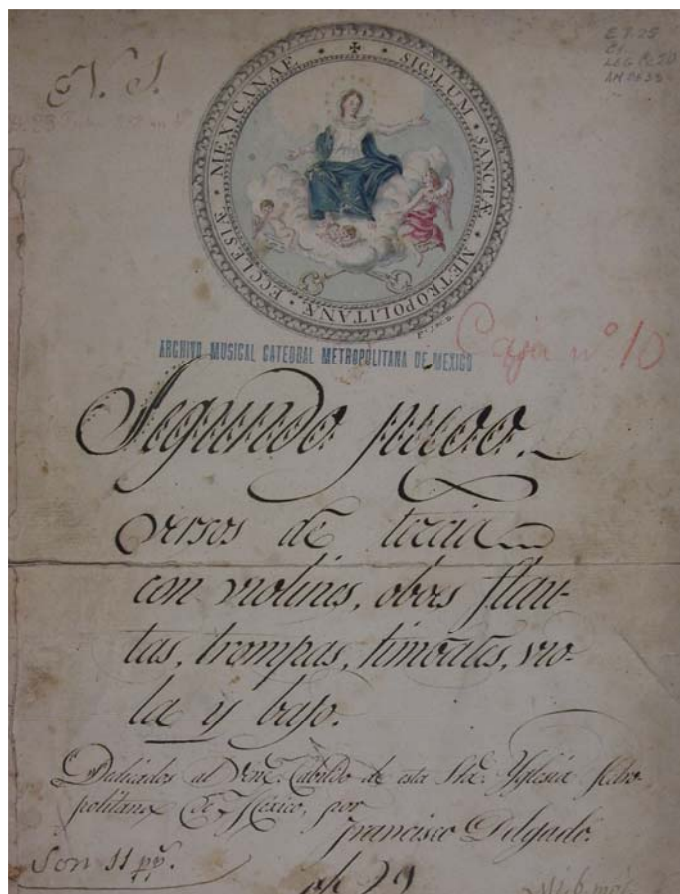 N. 1.
E 7.25
LEG
AM
✠ SIGILUM • SANCTÆ • METROPOLITANÆ • ECCLESIÆ • MEXICANAE •
ARCHIVO MUSICAL CATEDRAL METROPOLITANA DE MEXICO
Caja nº 10
Segundo juego.
versos de tercia
con violines, oboes flau-
tas, trompas, timbales, vio-
la y bajo.
Dedicados al Vene. Cabildo de esta Sta. Yglesia Metro-
politana de México, por
Francisco Delgado.
Son 11 pp.